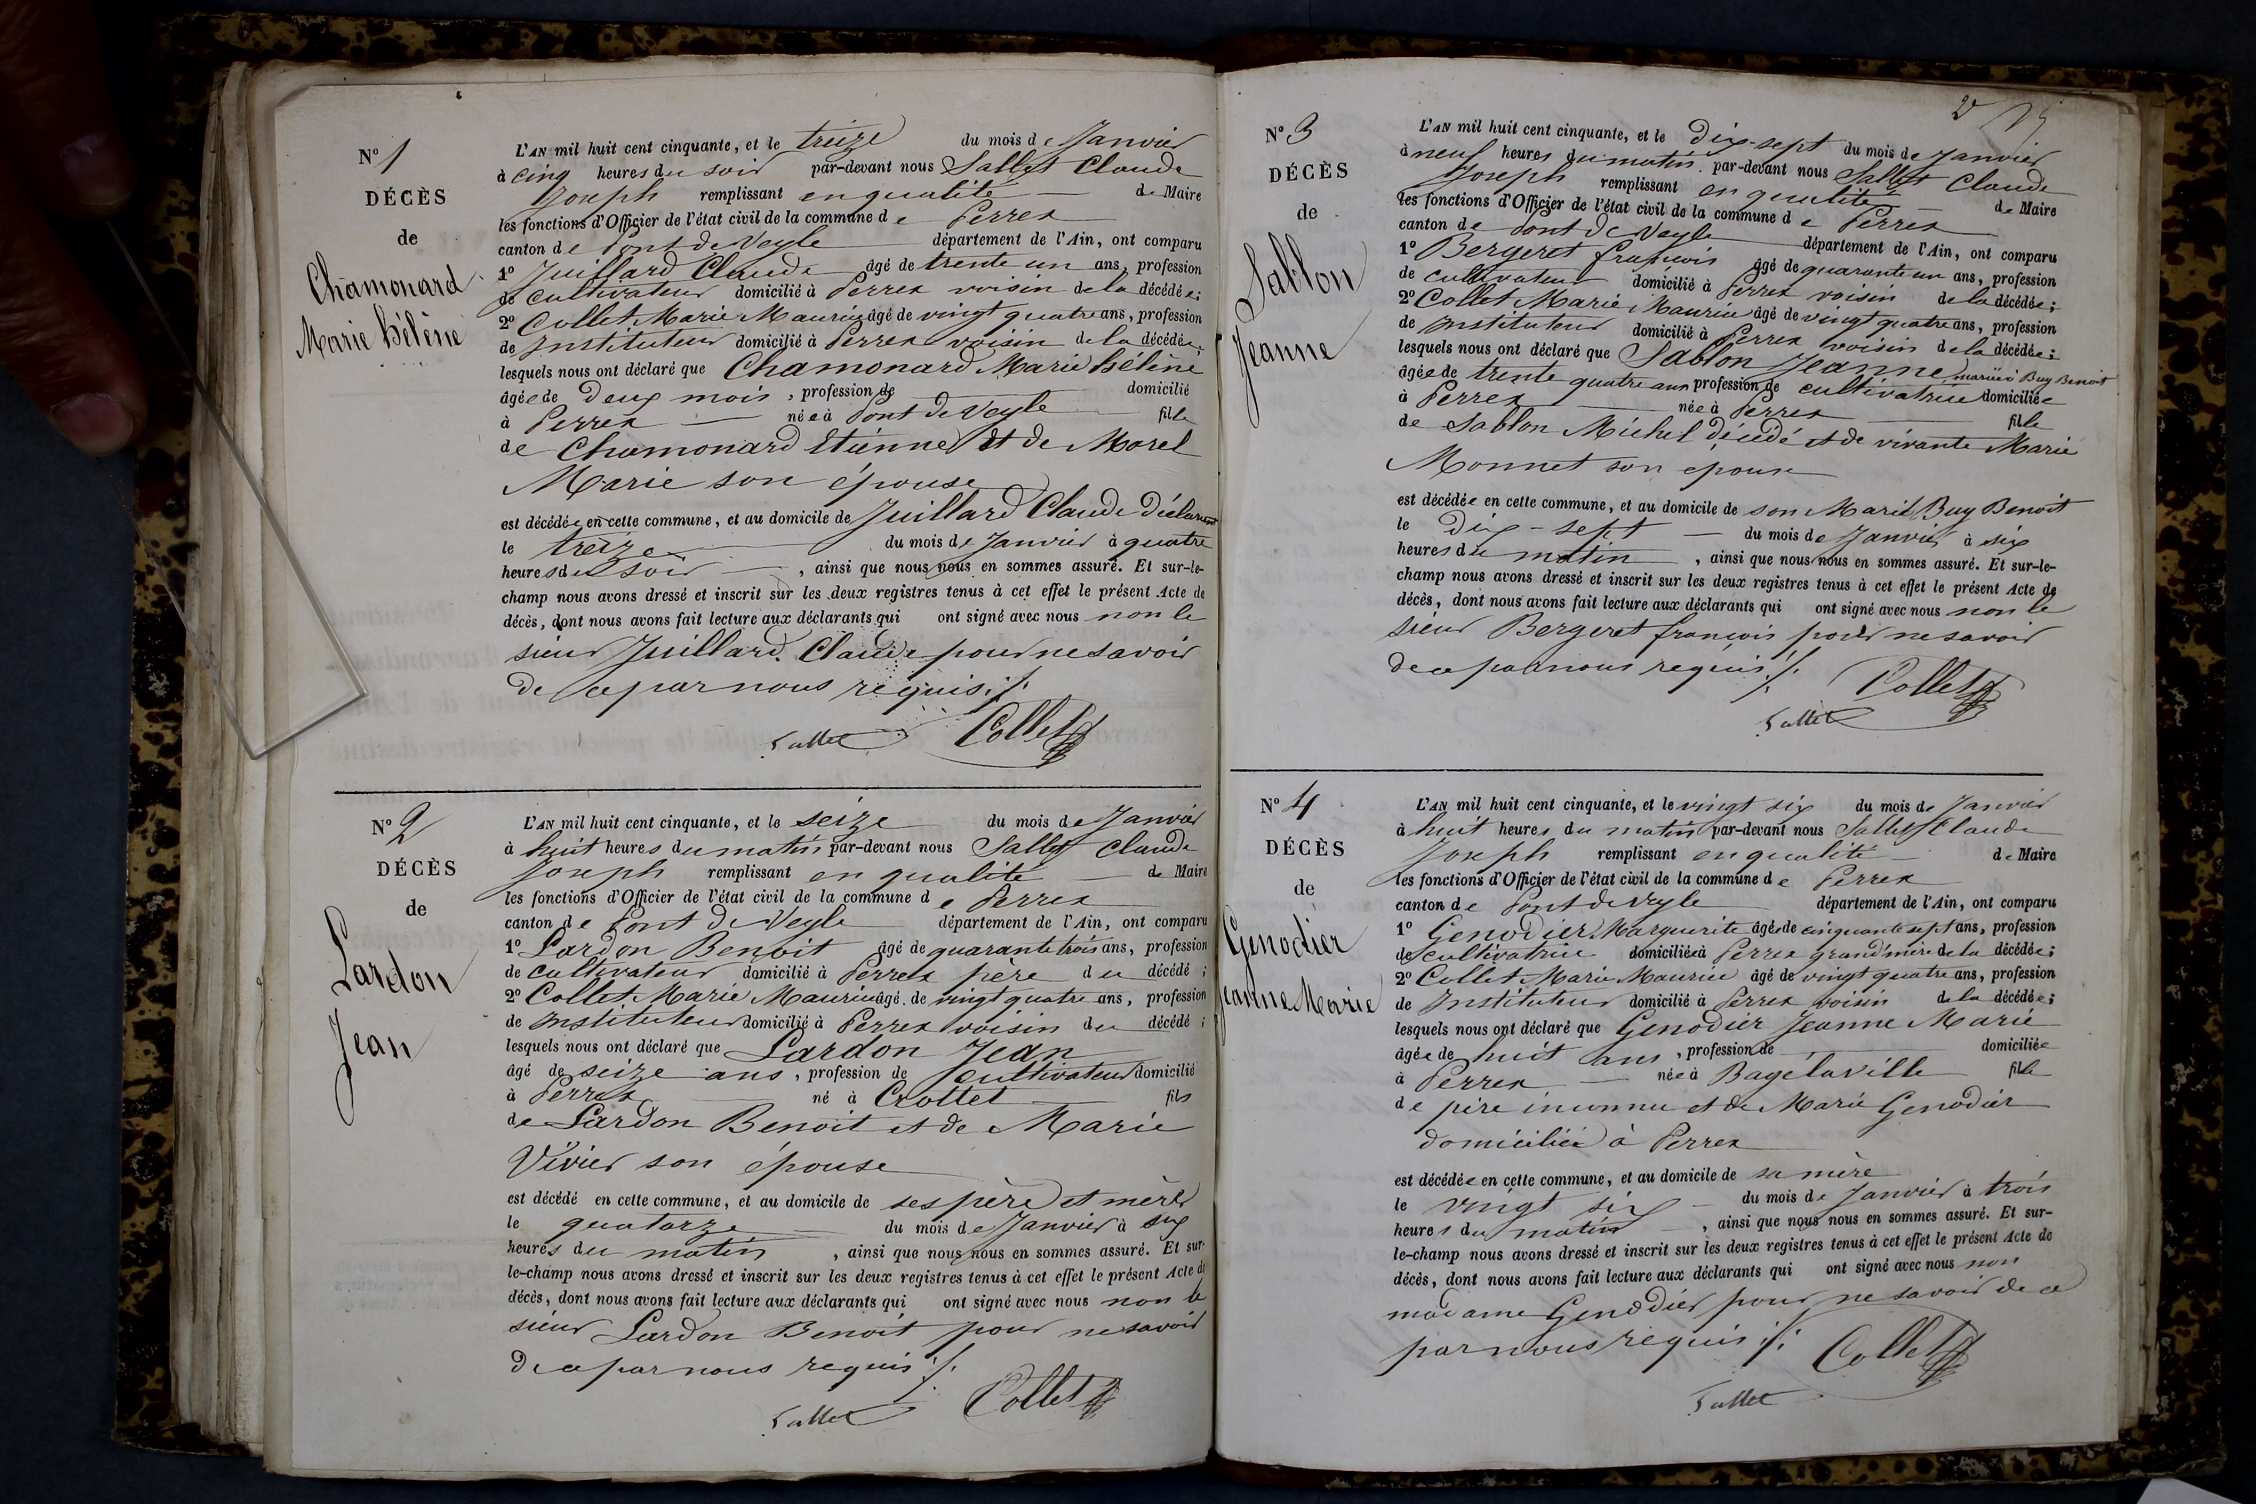 N° 1
DÉCÈS
de
Chamonard
Marie hélène
L'AN mil huit cent cinquante, et le treize du mois de Janvier
à cinq heures du soir par-devant nous Sallet Claude
Joseph remplissant en qualité de Maire
les fonctions d'Officier de l'état civil de la commune de Perrex
canton de Pont de Veyle département de l'Ain, ont comparu
1° Juillard Claude âgé de trente un ans, profession
de cultivateur domicilié à Perrex voisin de la décédée;
2° Collet Marie Maurice âgé de vingt quatre ans, profession
de Instituteur domicilié à Perrex voisin de la décédée;
lesquels nous ont déclaré que Chamonard Marie hélène
âgée de Deux mois, profession de domicilié
à Perrex née à Pont de Veyle fille
de Chamonard Etienne et de Morel
Marie son épouse
est décédée en cette commune, et au domicile de Juillard Claude Déclarant
le treize du mois de Janvier à quatre
heures du soir, ainsi que nous nous en sommes assuré. Et sur-le-
champ nous avons dressé et inscrit sur les deux registres tenus à cet effet le présent Acte de
décès, dont nous avons fait lecture aux déclarants qui ont signé avec nous non le
sieur Juillard Claude pour ne savoir
de ce par nous requis ./.
Sallet Collet
N° 2
DÉCÈS
de
Lardon
Jean
L'AN mil huit cent cinquante, et le seize du mois de Janvier
à huit heures du matin par-devant nous Sallet Claude
Joseph remplissant en qualité de Maire
les fonctions d'Officier de l'état civil de la commune de Perrex
canton de Pont de Veyle département de l'Ain, ont comparu
1° Lardon Benoit âgé de quarante trois ans, profession
de cultivateur domicilié à Perrex père du décédé;
2° Collet Marie Maurice âgé de vingt quatre ans, profession
de Instituteur domicilié à Perrex voisin du décédé;
lesquels nous ont déclaré que Lardon Jean
âgé de seize ans, profession de cultivateur domicilié
à Perrex né à Crottet fils
de Lardon Benoit et de Marie
Vivier son épouse
est décédé en cette commune, et au domicile de ses père et mère
le quatorze du mois de Janvier à six
heures du matin, ainsi que nous nous en sommes assuré. Et sur-
le-champ nous avons dressé et inscrit sur les deux registres tenus à cet effet le présent Acte de
décès, dont nous avons fait lecture aux déclarants qui ont signé avec nous non le
sieur Lardon Benoit pour ne savoir
de ce par nous requis ./.
Sallet Collet
2
N° 3
DÉCÈS
de
Sablon
Jeanne
L'AN mil huit cent cinquante, et le dix-sept du mois de Janvier
à neuf heures du matin par-devant nous Sallet Claude
Joseph remplissant en qualité de Maire
les fonctions d'Officier de l'état civil de la commune de Perrex
canton de Pont de Veyle département de l'Ain, ont comparu
1° Bergeret françois âgé de quarante un ans, profession
de cultivateur domicilié à Perrex voisin de la décédée;
2° Collet Marie Maurice âgé de vingt quatre ans, profession
de Instituteur domicilié à Perrex voisin de la décédée;
lesquels nous ont déclaré que Sablon Jeanne mariée à Buy Benoit
âgée de trente quatre ans profession de cultivatrice domiciliée
à Perrex née à Perrex fille
de Sablon Michel décédé et de vivante Marie
Monnet son epouse
est décédée en cette commune, et au domicile de son Marie Buy Benoit
le Dix-sept du mois de Janvier à six
heures du matin, ainsi que nous nous en sommes assuré. Et sur-le-
champ nous avons dressé et inscrit sur les deux registres tenus à cet effet le présent Acte de
décès, dont nous avons fait lecture aux déclarants qui ont signé avec nous non le
sieur Bergeret françois pour ne savoir
de ce par nous requis ./.
Collet
Sallet
N° 4
DÉCÈS
de
Genodier
Jeanne Marie
L'AN mil huit cent cinquante, et le vingt six du mois de Janvier
à huit heures du matin par-devant nous Sallet Claude
Joseph remplissant en qualité de Maire
les fonctions d'Officier de l'état civil de la commune de Perrex
canton de Pont de Veyle département de l'Ain, ont comparu
1° Genodier Marguerite âgée de cinquante sept ans, profession
de cultivatrice domiciliée à Perrex grand mère de la décédée;
2° Collet Marie Maurice âgé de vingt quatre ans, profession
de Instituteur domicilié à Perrex voisin de la décédée;
lesquels nous ont déclaré que Genodier Jeanne Marie
âgée de huit ans, profession de domiciliée
à Perrex née à Bagelaville fille
de père inconnu et de Marie Genodier
domiciliée à Perrex
est décédée en cette commune, et au domicile de sa mère
le vingt six du mois de Janvier à trois
heures du matin, ainsi que nous nous en sommes assuré. Et sur-
le-champ nous avons dressé et inscrit sur les deux registres tenus à cet effet le présent Acte de
décès, dont nous avons fait lecture aux déclarants qui ont signé avec nous non
madame Genodier pour ne savoir de ce
par nous requis ./.
Collet
Sallet